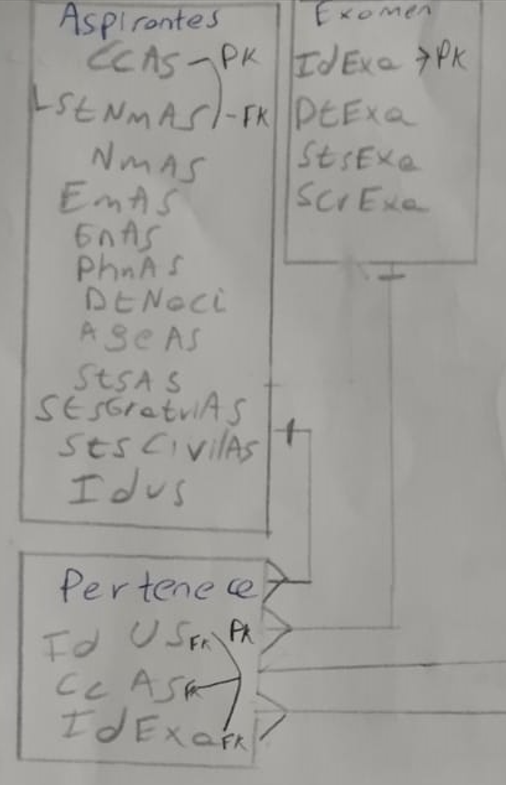 Aspirantes
CCAS PK
LStNmAS -FK
NmAS
EmAS
GnAS
PhnAS
DtNaci
AgeAS
StsAS
StsGratuiAS
StsCivilAs
Idus
Examen
IdExa → PK
DtExa
StsExa
ScrExa
Pertenece
Id US FK PK
Cc AS FK
IdExa FK